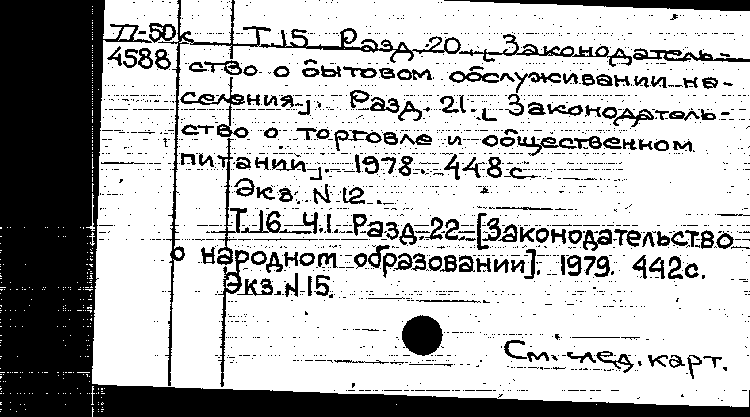 П-50к Т.15 Разд. 20. [Законодатель-
4588 ство о бытовом обслуживании на-
селения]. Разд. 21. [Законодатель-
ство о торговле и общественном
питании]. 1978. 448 с.
Экз. N 12.
Т.16. Ч.1. Разд. 22. [Законодательство
о народном образовании]. 1979. 442с.
Экз. N 15.
См. след. карт.